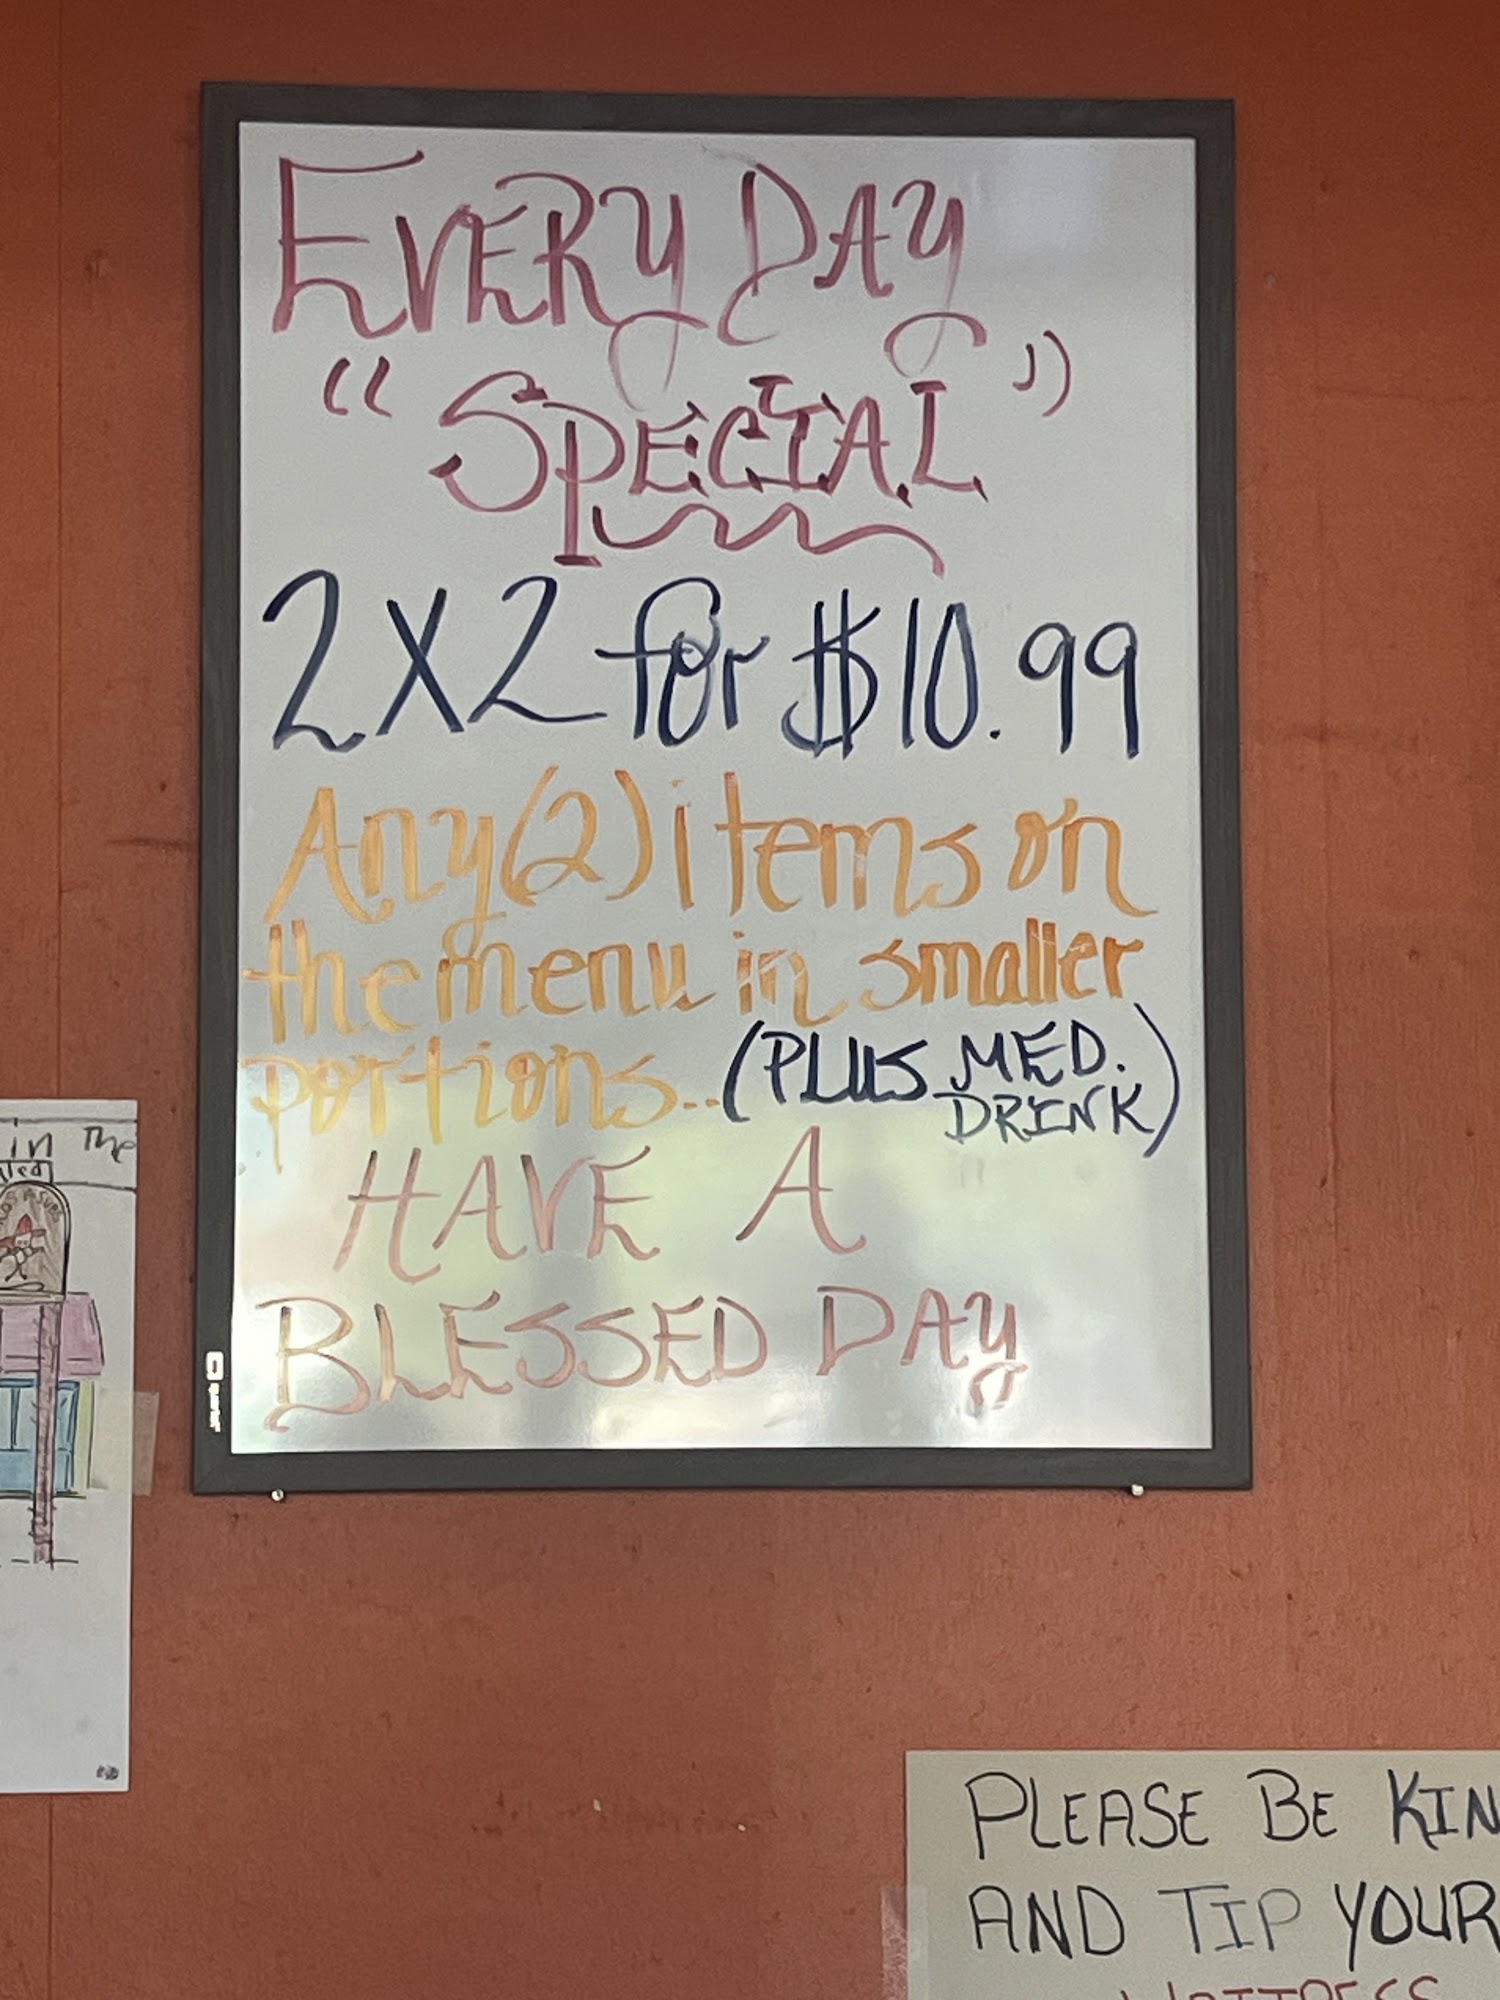 EVERY DAY
"SPECIAL"
2X2 for $10.99
Any (2) items on
the menu in smaller
portions... (PLUS MED.
DRINK)
HAVE A
BLESSED DAY
quartet
in The
PLEASE BE KIN
AND TIP YOUR
WAITRESS